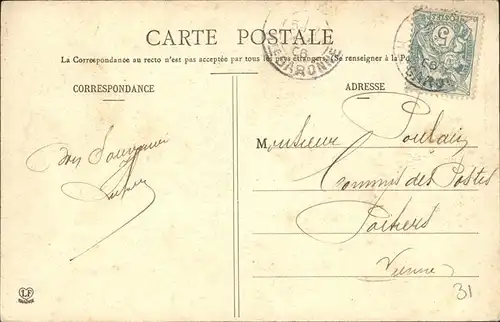 CARTE POSTALE
La Correspondance au recto n'est pas acceptée par tous les pays étrangers. (Se renseigner à la Po
CORRESPONDANCE
ADRESSE
Bon Souvenir
Monsieur Poulain
Commis des Postes
Poitiers
Vienne
31
GARONNE
5
LF